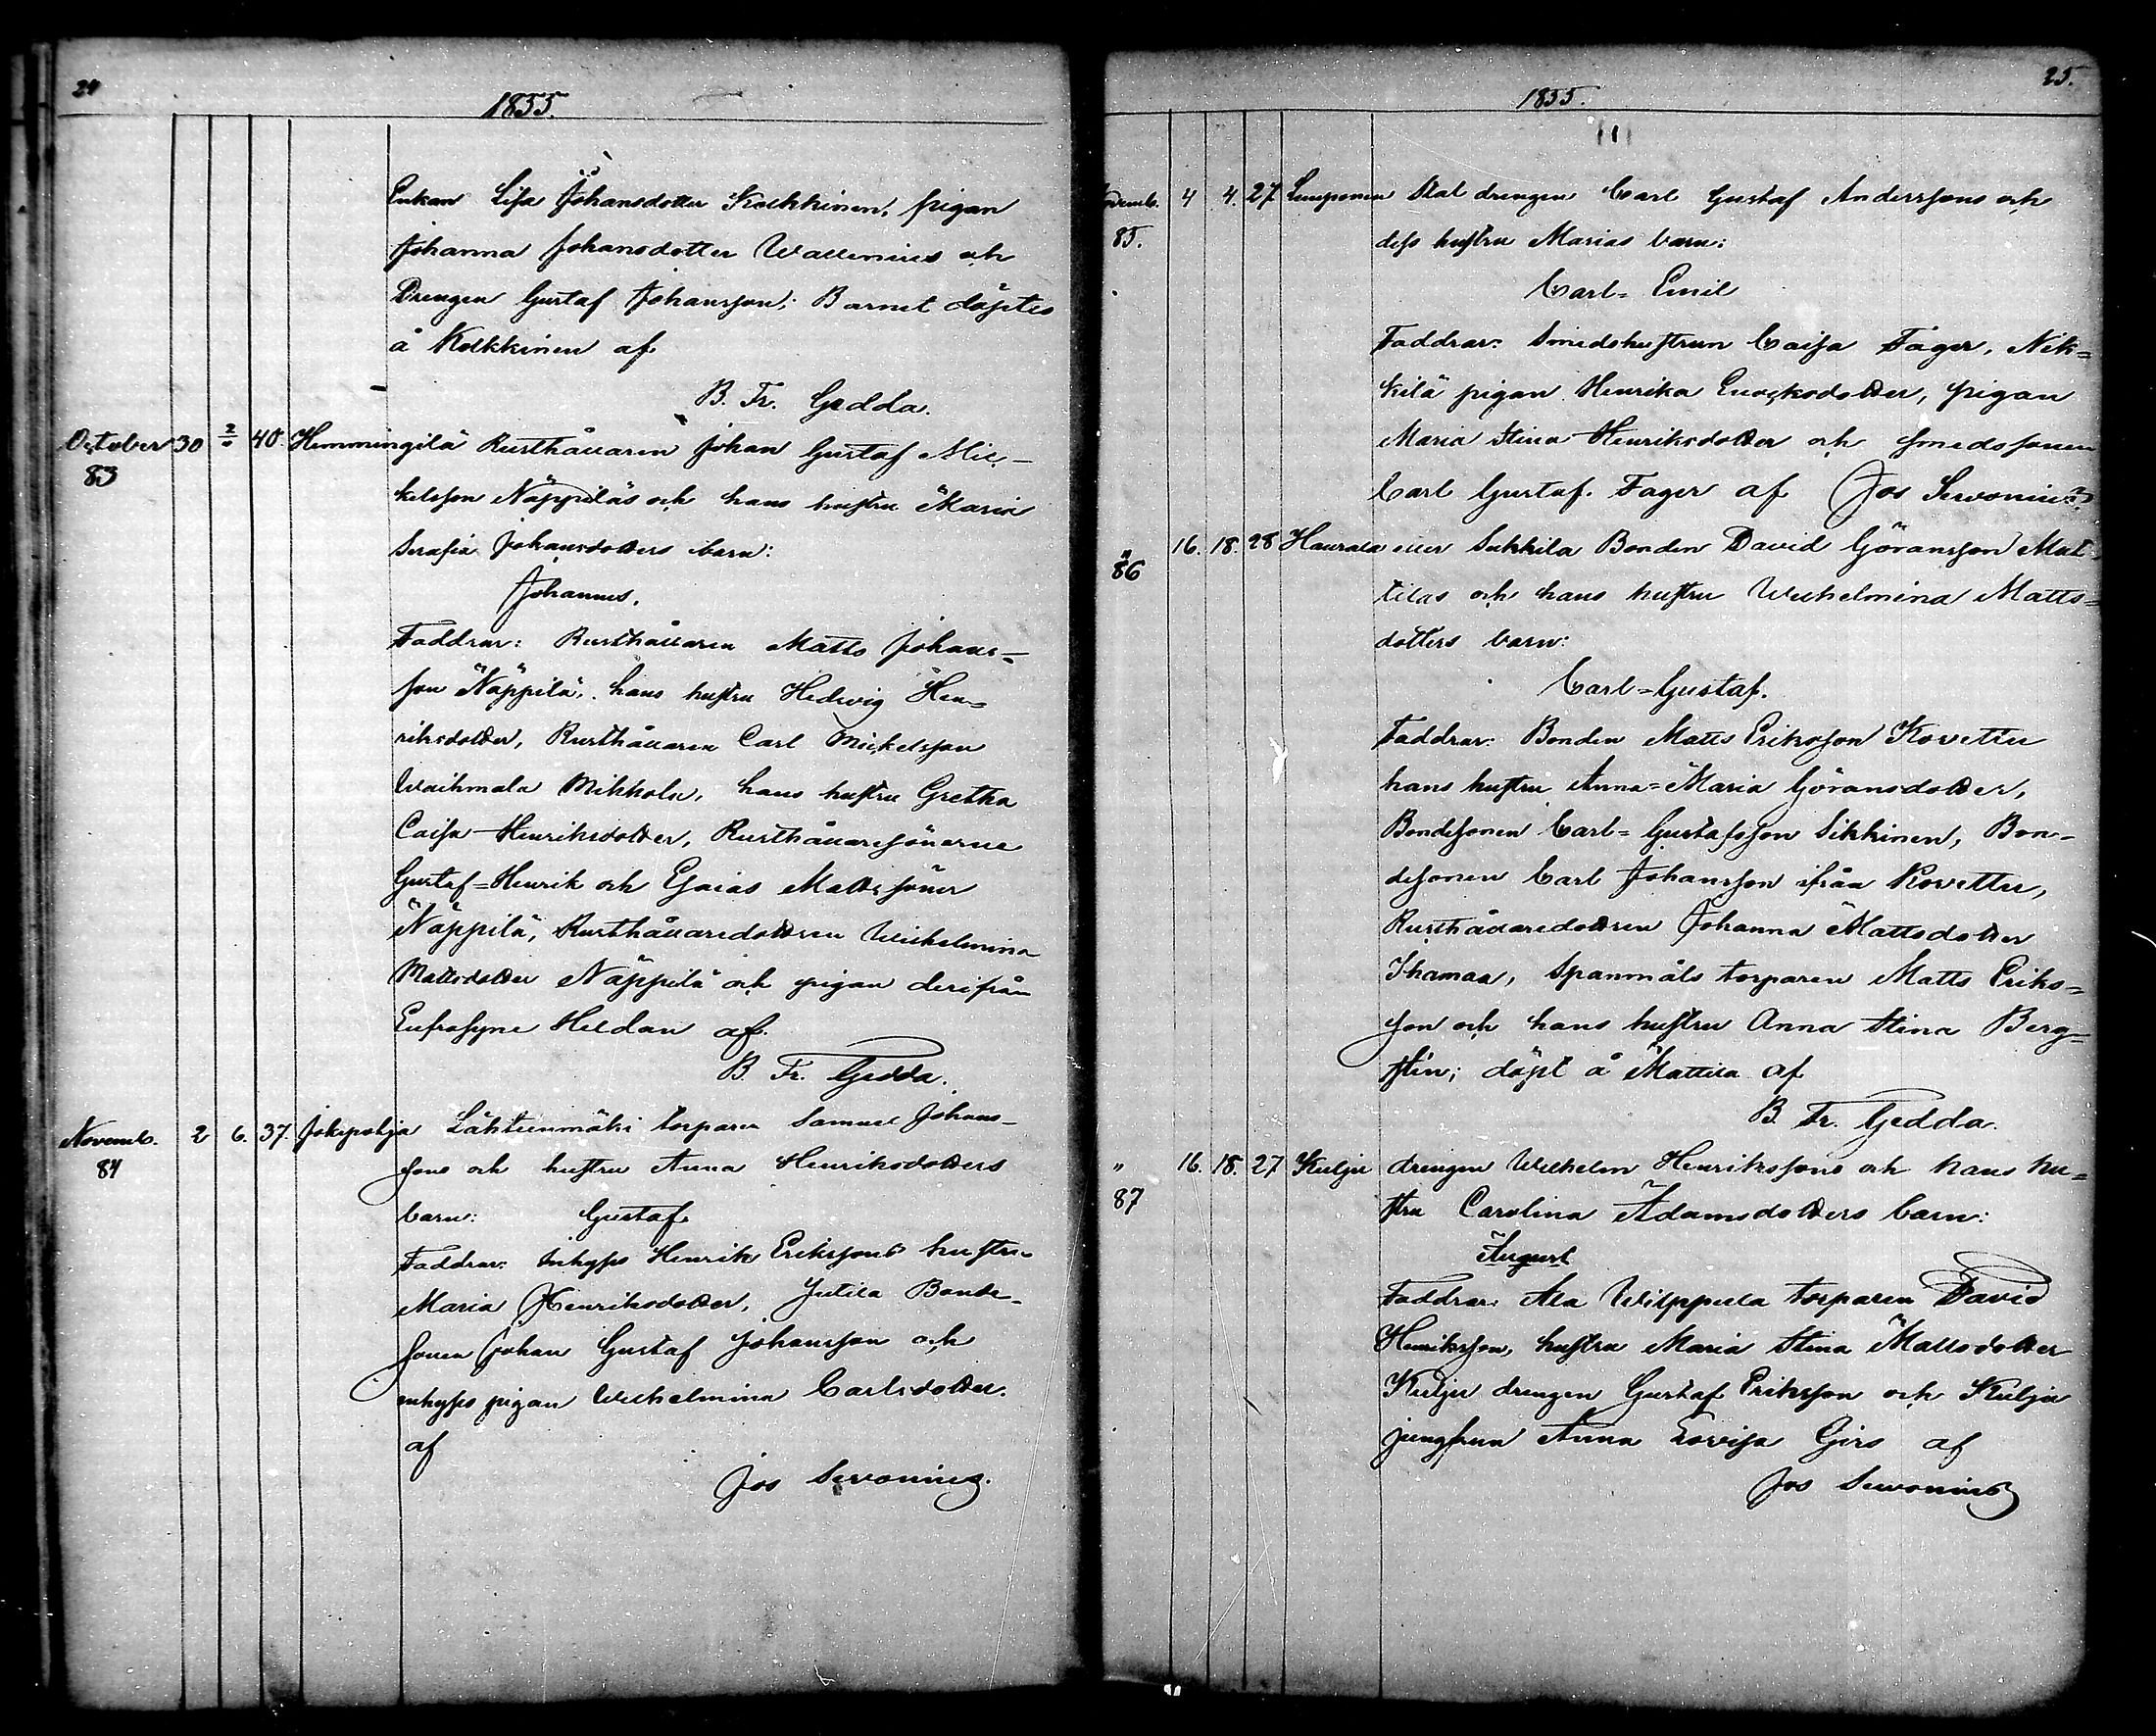 24
1855.
Enkan Lisa Johansdotter Kolkkinen, pigan
Johanna Johansdotter Wallenius och
Drengen Gustaf Johansson; Barnet döptes
å Kolkkinen af
B. Fr. Gedda.
October 30 2/11 40. Hemmingilä Rusthållaren Johan Gustaf Mic-
83
kelsson Näppiläs och hans hustru Maria
Serafia Johansdotters barn:
Johannes.
Faddrar: Rusthållaren Matts Johans-
son Näppilä, hans hustru Hedvig Hen-
riksdotter, Rusthållaren Carl Mickelsson
Waihmala Mikkola, hans hustru Gretha
Caisa Henriksdotter, Rusthållaresönerne
Gustaf=Henrik och Esaias Mattssöner
Näppilä, Rusthållaredottren Wilhelmina
Mattsdotter Näppilä och pigan derifrån
Eufrosyne Heldan af
B. Fr. Gedda.
Novemb. 2 6. 37. Jokipohja Lähteenmäki torparen Samuel Johans-
84
sons och hustru Anna Henriksdotters
barn: Gustaf
Faddrar: Inhyses Henrik Erikssons hustru
Maria Henriksdotter, Jutila Bonde-
sonen Johan Gustaf Johansson och
inhyses pigan Wilhelmina Carlsdotter.
af
Jos Sevonius.
25.
1855.
Novemb. 4 4. 27 Lemponen Stal drengen Carl Gustaf Anderssons och
85.
dess hustru Marias barn:
Carl=Emil
Faddrar: Smedshustrun Caisa Fager, Nik=
kilä pigan Henrika Enocksdotter, pigan
Maria Stina Henriksdotter och smedssonen
Carl Gustaf Fager af Jos Sevonius.
" 16. 18. 28 Haurala eller Sukkila Bonden David Göransson Mat-
86
tilas och hans hustru Wilhelmina Matts=
dotters barn:
Carl=Gustaf.
Faddrar: Bonden Matts Eriksson Kovettu
hans hustru Anna=Maria Göransdotter,
Bondesonen Carl=Gustafsson Sikkinen, Bon-
desonen Carl Johansson ifrån Kovettu,
Rusthållaredottren Johanna Mattsdotter
Ihamaa, Spanmåls torparen Matts Eriks=
son och hans hustru Anna Stina Berg=
stén; döpt å Mattila af
B. Fr. Gedda.
" 16. 18. 27 Kulju drengen Wilhelm Henrikssons och hans hu=
87
stru Carolina Adamsdotters barn:
August
Faddrar: Ala Wilppula torparen David
Henriksson, hustru Maria Stina Mattsdotter
Kulju drengen Gustaf Eriksson och Kulju
jungfrun Anna Lovisa Girs af
Jos Sevonius